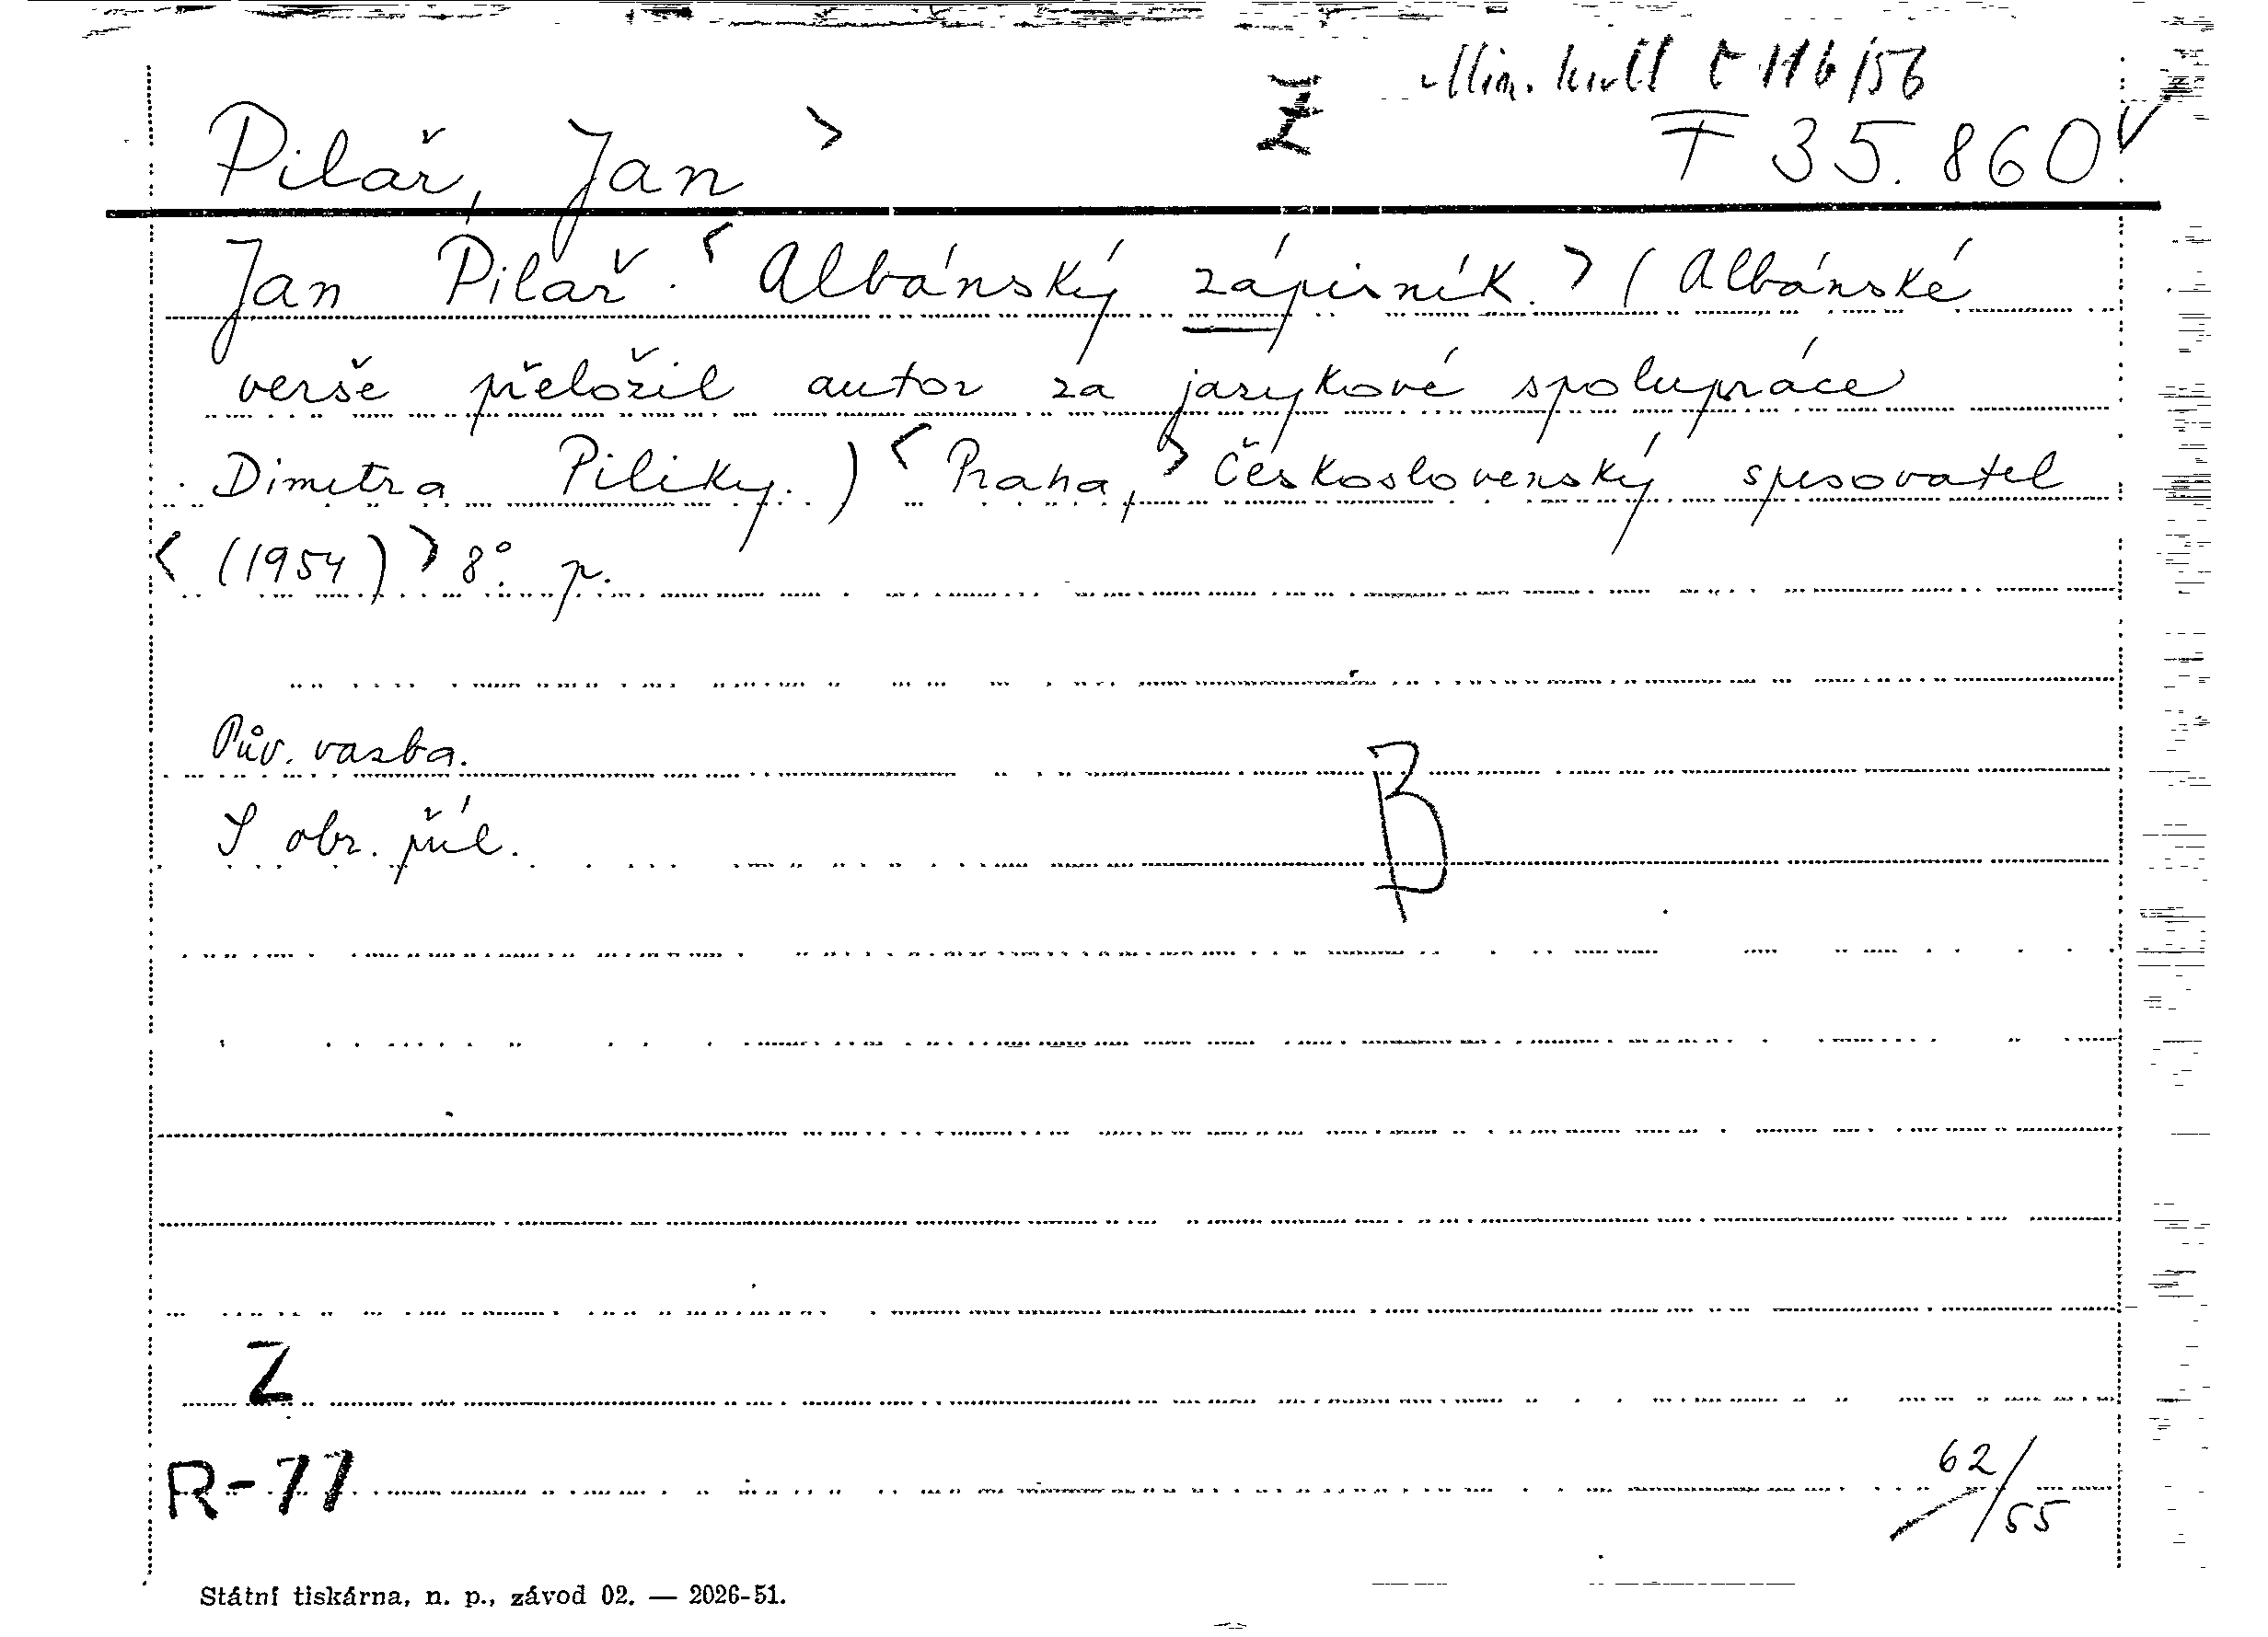 Min. kult č 116/56
Z
Pilař, Jan > F 35.860
Jan Pilař. <Albánský zápisník.> (Albánské
verše přeložil autor za jazykové spolupráce
Dimitra Piliky.) <Praha,> Československý spisovatel
<(1954)> 8°. p.
Pův. vazba.
S obr. příl.
B
Z
R-77
62/55
Státní tiskárna, n. p., závod 02. — 2026-51.